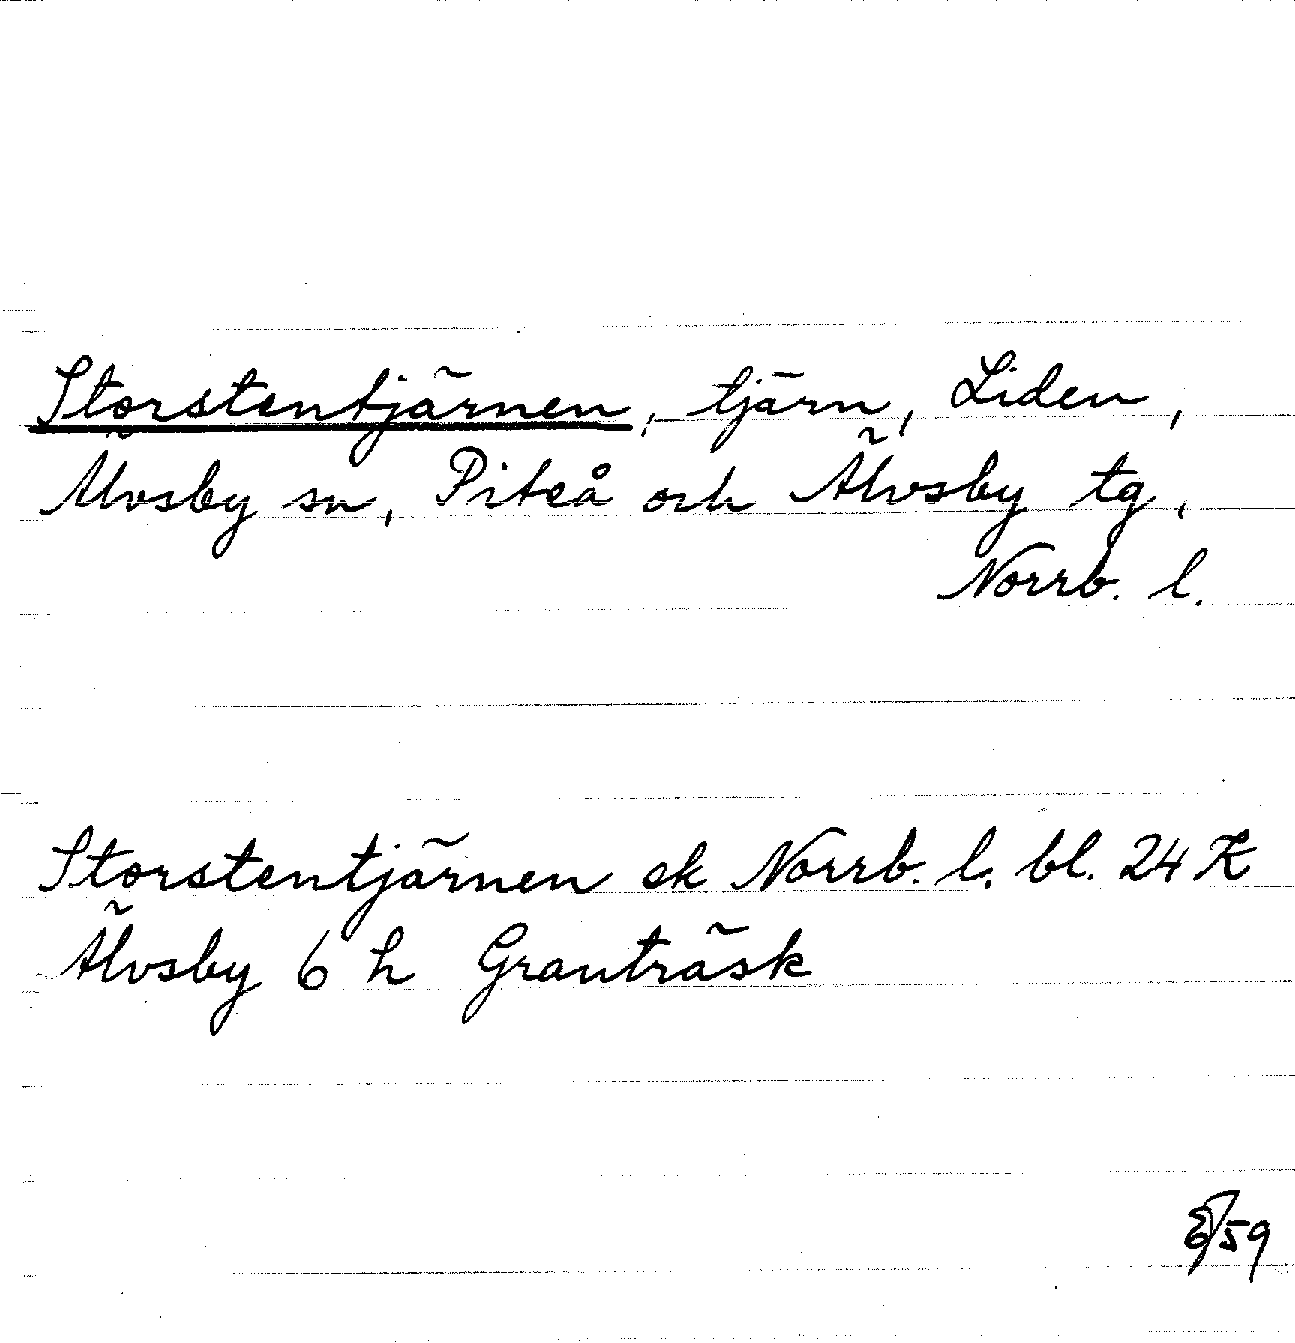 Storstentjärnen, tjärn, Liden,
Älvsby sn, Piteå och Älvsby tg,
Norrb. l.
Storstentjärnen ek Norrb. l. bl. 24 K
Älvsby 6 h Granträsk